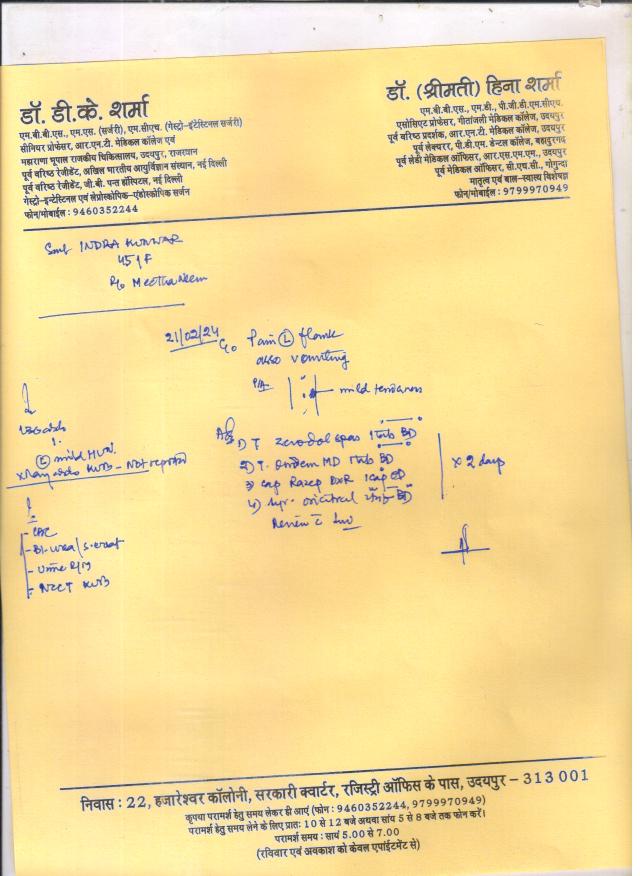 डॉ. डी.के. शर्मा
एम.बी.बी.एस., एम.एस. (सर्जरी), एम.सीएच. (गेस्ट्रो-इंटेस्टिनल सर्जरी)
सीनियर प्रोफेसर, आर.एन.टी. मेडिकल कॉलेज एवं
महाराणा भूपाल राजकीय चिकित्सालय, उदयपुर, राजस्थान
पूर्व वरिष्ठ रेजीडेंट, अखिल भारतीय आयुर्विज्ञान संस्थान, नई दिल्ली
पूर्व वरिष्ठ रेजीडेंट, जी.बी. पन्त हॉस्पिटल, नई दिल्ली
गेस्ट्रो-इन्टेस्टिनल एवं लेप्रोस्कोपिक-एंडोस्कोपिक सर्जन
फोन/मोबाईल : 9460352244
डॉ. (श्रीमती) हिना शर्मा
एम.बी.बी.एस., एम.डी., पी.जी.डी.एम.सीएच.
एसोसिएट प्रोफेसर, गीतांजली मेडिकल कॉलेज, उदयपुर
पूर्व वरिष्ठ प्रदर्शक, आर.एन.टी. मेडिकल कॉलेज, उदयपुर
पूर्व लेक्चरर, पी.डी.एम. डेन्टल कॉलेज, बहादुरगढ़
पूर्व लेडी मेडिकल ऑफिसर, आर.एस.एम.एम., उदयपुर
पूर्व मेडिकल ऑफिसर, सी.एच.सी., गोगुन्दा
मातृत्व एवं बाल-स्वास्थ्य विशेषज्ञ
फोन/मोबाईल : 9799970949
Smt INDRA KUNWAR
45/F
R/o Meetha Neem
21/02/24 C/o Pain (L) flank
also vomiting
P/A mild tenderness
(L) mild HUN.
Xray KUB - Not reported
Adv
1) T. Zerodol spas 1 tab BD
2) T. Ondem MD 1 tab BD
3) Cap Razep DXR 1 cap OD
4) Syr. BD
x 2 days
Review
- CBC
- Bl. urea/S. creat
- Urine R/M
- NCCT KUB
निवास : 22, हजारेश्वर कॉलोनी, सरकारी क्वार्टर, रजिस्ट्री ऑफिस के पास, उदयपुर – 313 001
कृपया परामर्श हेतु समय लेकर ही आएं (फोन : 9460352244, 9799970949)
परामर्श हेतु समय लेने के लिए प्रातः 10 से 12 बजे अथवा सांय 5 से 8 बजे तक फोन करें।
परामर्श समय : सायं 5.00 से 7.00
(रविवार एवं अवकाश को केवल एपांईटमेंट से)